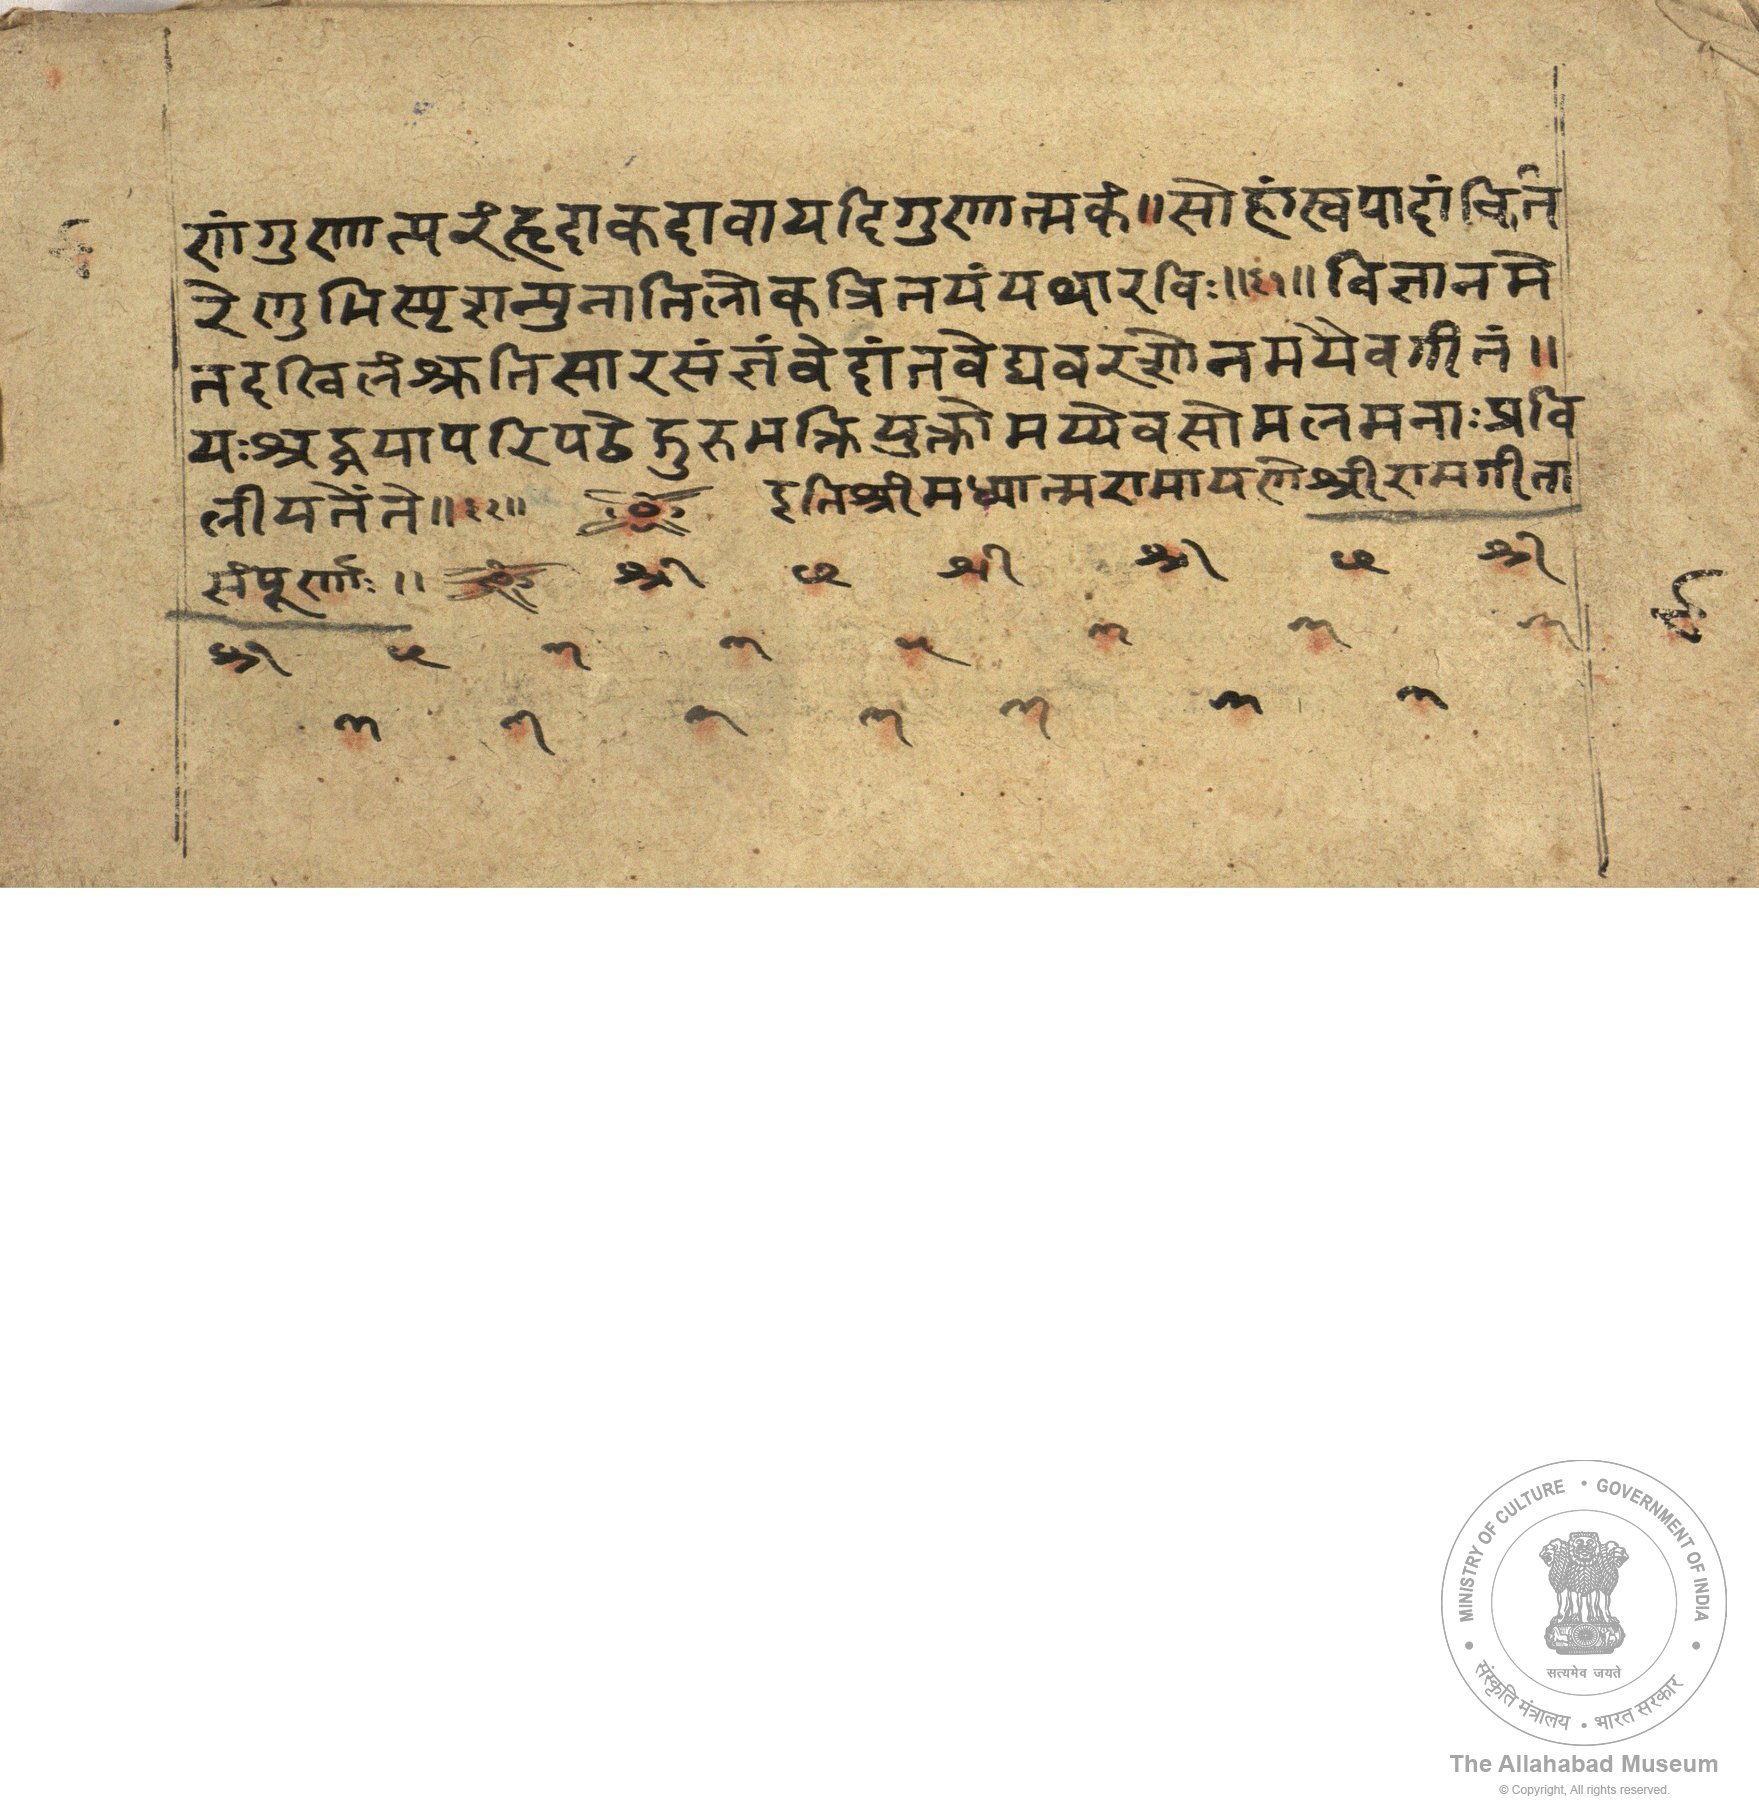 णंगुणात्परंहृदाकदावायदिगुणात्मकं॥सोहंस्वपादांकित
रेणुभिस्पृशन्पुनातिलोकत्रितयंयथारविः॥६१॥विज्ञानमे
तदखिलंश्रुतिसारसंज्ञंवेदांतवेद्यचरणेनमयैवगीतं॥
यःश्रद्धयापरिपठेद्गुरुभक्तियुक्तोमय्येवसोमलमनाःप्रवि
लीयतेंते॥६२॥ इतिश्रीमध्यात्मरामायणेश्रीरामगीता
संपूर्णः॥ श्री ५ श्री श्री ५ श्री
श्री ५
MINISTRY OF CULTURE • GOVERNMENT OF INDIA
सत्यमेव जयते
संस्कृति मंत्रालय • भारत सरकार
The Allahabad Museum
© Copyright, All rights reserved.